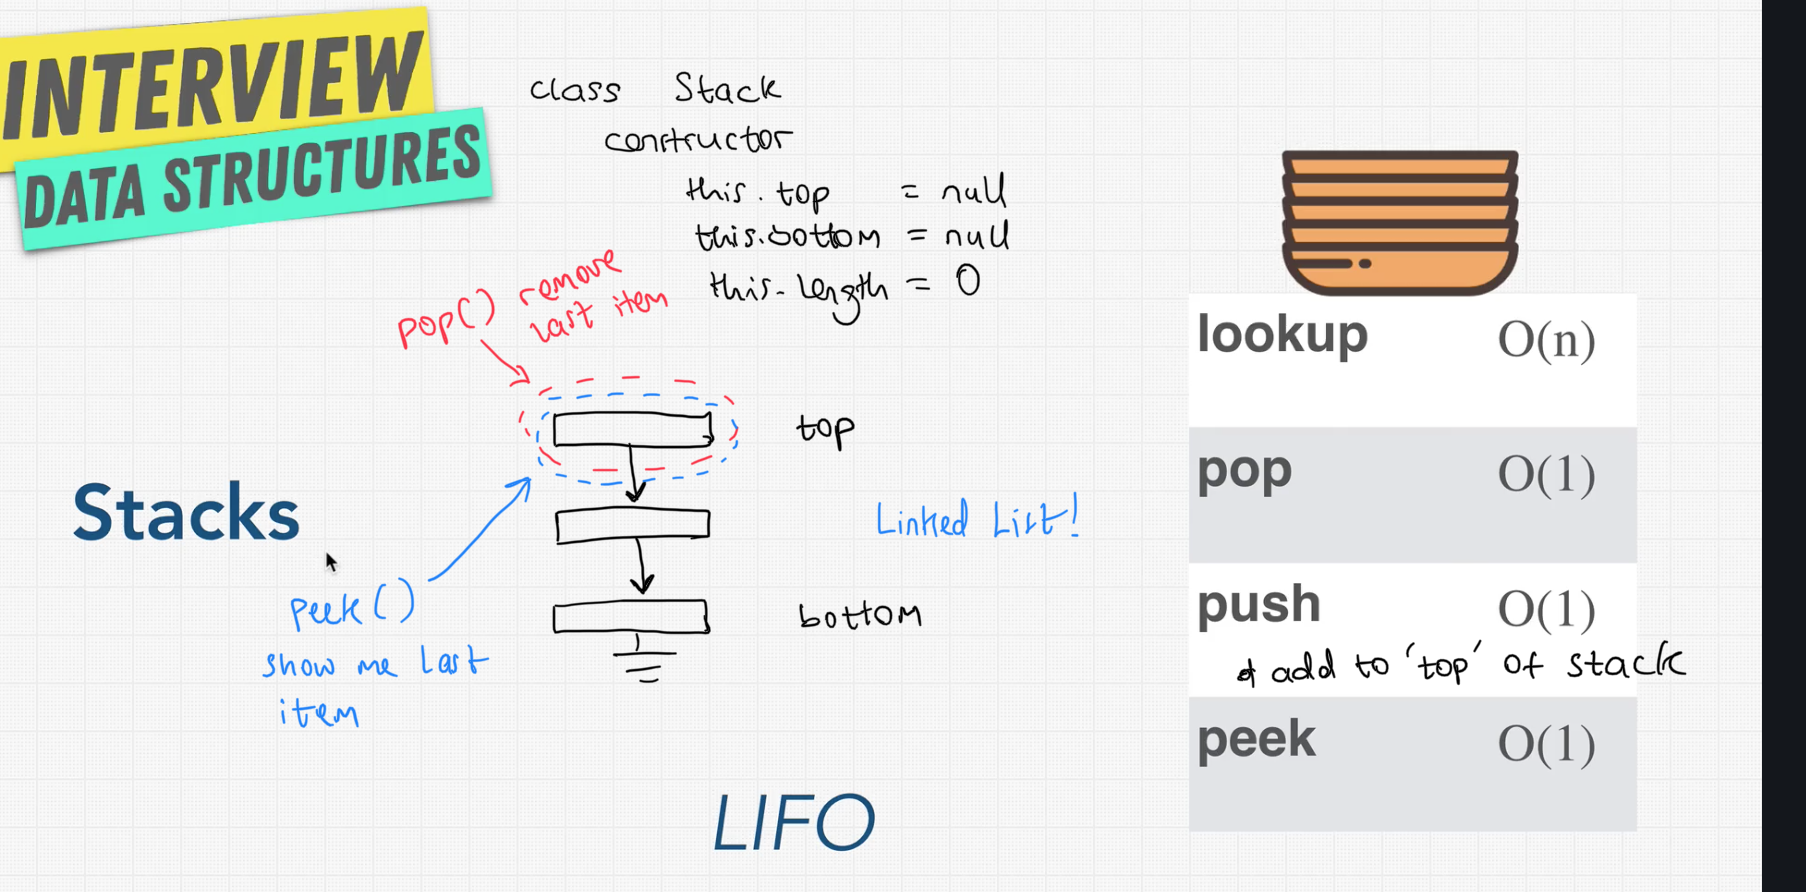 INTERVIEW
DATA STRUCTURES
class Stack
constructor
this.top = null
this.bottom = null
this.length = 0
pop() remove
last item
top
Stacks
Linked List!
peek()
show me last
item
bottom
LIFO
lookup O(n)
pop O(1)
push O(1)
add to 'top' of stack
peek O(1)